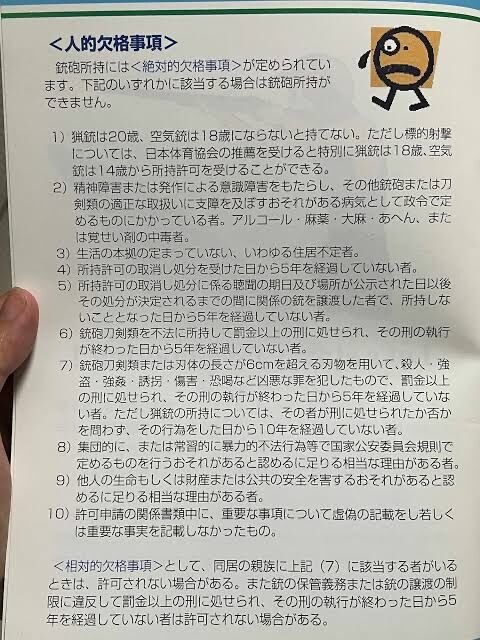 ＜人的欠格事項＞
銃砲所持には＜絶対的欠格事項＞が定められてい
ます。下記のいずれかに該当する場合は銃砲所持が
できません。
1）猟銃は20歳、空気銃は18歳にならないと持てない。ただし標的射撃
については、日本体育協会の推薦を受けると特別に猟銃は18歳、空気
銃は14歳から所持許可を受けることができる。
2）精神障害または発作による意識障害をもたらし、その他銃砲または刀
剣類の適正な取扱いに支障を及ぼすおそれがある病気として政令で定
めるものにかかっている者。アルコール・麻薬・大麻・あへん、また
は覚せい剤の中毒者。
3）生活の本拠の定まっていない、いわゆる住居不定者。
4）所持許可の取消し処分を受けた日から5年を経過していない者。
5）所持許可の取消し処分に係る聴聞の期日及び場所が公示された日以後
その処分が決定されるまでの間に関係の銃を譲渡した者で、所持しな
いこととなった日から5年を経過していない者。
6）銃砲刀剣類を不法に所持して罰金以上の刑に処せられ、その刑の執行
が終わった日から5年を経過していない者。
7）銃砲刀剣類または刃体の長さが6cmを超える刃物を用いて、殺人・強
盗・強姦・誘拐・傷害・恐喝など凶悪な罪を犯したもので、罰金以上
の刑に処せられ、その刑の執行が終わった日から5年を経過していな
い者。ただし猟銃の所持については、その者が刑に処せられたか否か
を問わず、その行為をした日から10年を経過していない者。
8）集団的に、または常習的に暴力的不法行為等で国家公安委員会規則で
定めるものを行うおそれがあると認めるに足りる相当な理由がある者。
9）他人の生命もしくは財産または公共の安全を害するおそれがあると認
めるに足りる相当な理由がある者。
10）許可申請の関係書類中に、重要な事項について虚偽の記載をし若しく
は重要な事実を記載しなかったもの。
＜相対的欠格事項＞として、同居の親族に上記（7）に該当する者がいる
ときは、許可されない場合がある。また銃の保管義務または銃の譲渡の制
限に違反して罰金以上の刑に処せられ、その刑の執行が終わった日から5
年を経過していない者は許可されない場合がある。